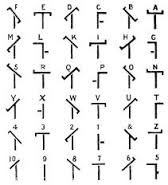 F E D C B A
M L K I H G
S R Q P O N
Y X W V U T
4 3 2 1 & Z
10 9 8 7 6